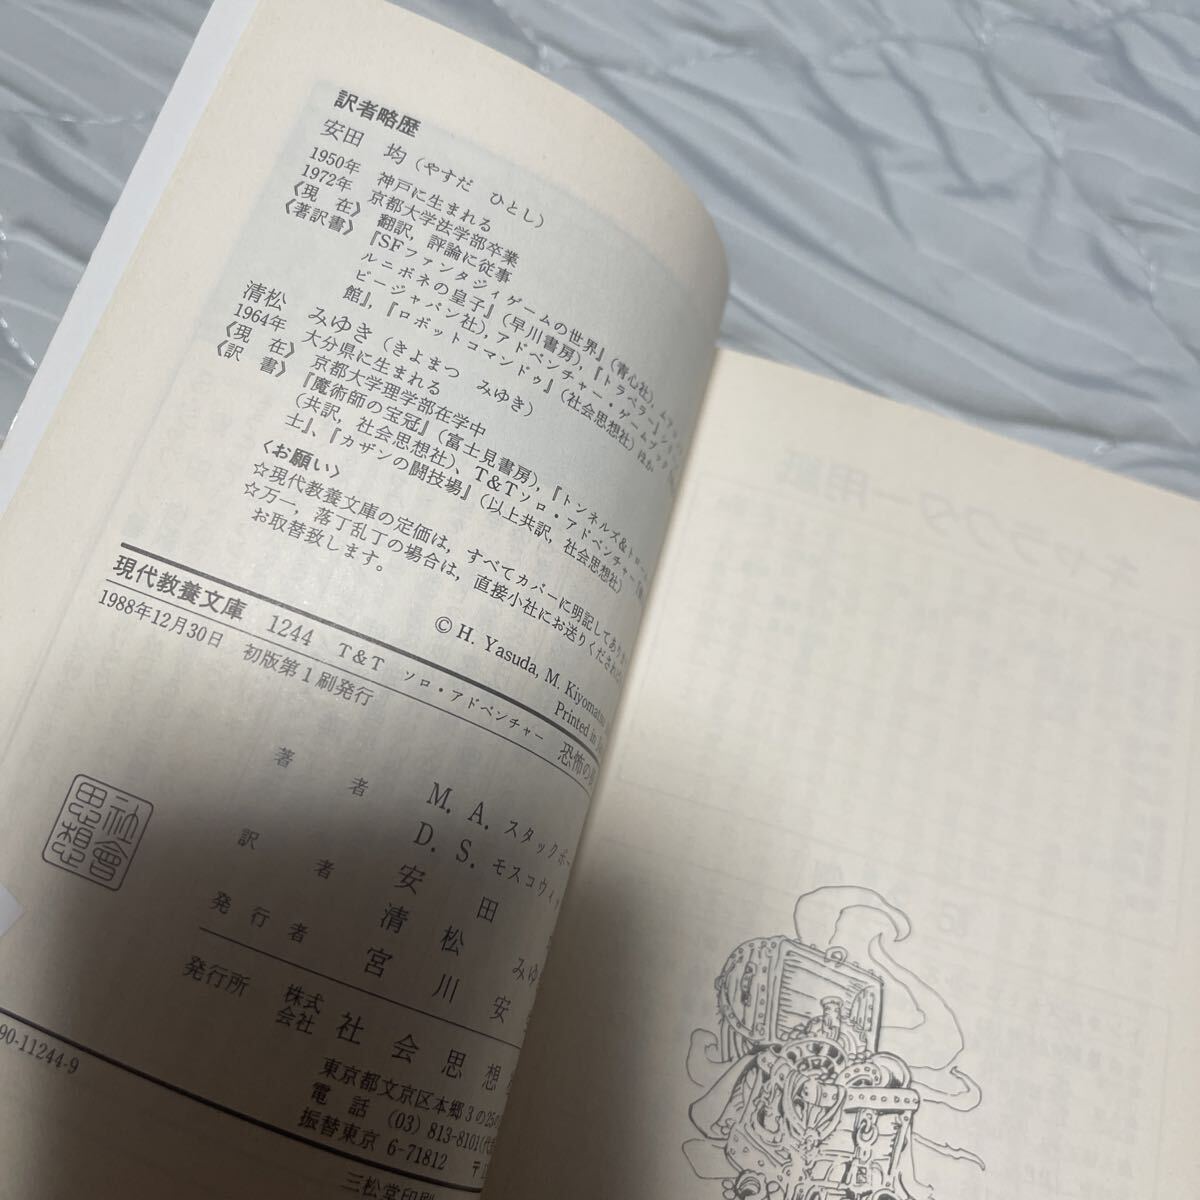 訳者略歴
安田 均（やすだ ひとし）
1950年 神戸に生まれる
1972年 京都大学法学部卒業
〈現 在〉 翻訳，評論に従事
〈著訳書〉 『SFファンタジィゲームの世界』（青心社），
ルニボネの皇子』（早川書房），『トラベラー』
ビージャパン社），アドベンチャー・ゲームブック
館』，『ロボットコマンドゥ』（社会思想社）ほか
清松 みゆき（きよまつ みゆき）
1964年 大分県に生まれる
〈現 在〉 京都大学理学部在学中
〈訳 書〉 『魔術師の宝冠』（富士見書房），『トンネルズ＆トロール
（共訳，社会思想社）、T＆Tソロ・アドベンチャー
士』、『カザンの闘技場』（以上共訳，社会思想社）
〈お願い〉
☆現代教養文庫の定価は，すべてカバーに明記してあり
☆万一，落丁乱丁の場合は，直接小社にお送りくだされば，
お取替致します。
© H. Yasuda, M. Kiyomatsu
Printed in
現代教養文庫 1244 T＆T ソロ・アドベンチャー 恐怖の
1988年12月30日 初版第1刷発行
著 者 M. A. スタックポー
D. S. モスコウィッ
訳 者 安 田
清 松 みゆ
発行者 宮 川 安
発行所 株式会社 社 会 思 想
東京都文京区本郷3の25の
電 話 (03) 813-8101(代
振替東京 6-71812 〒
三松堂印刷
90-11244-9
社會思想